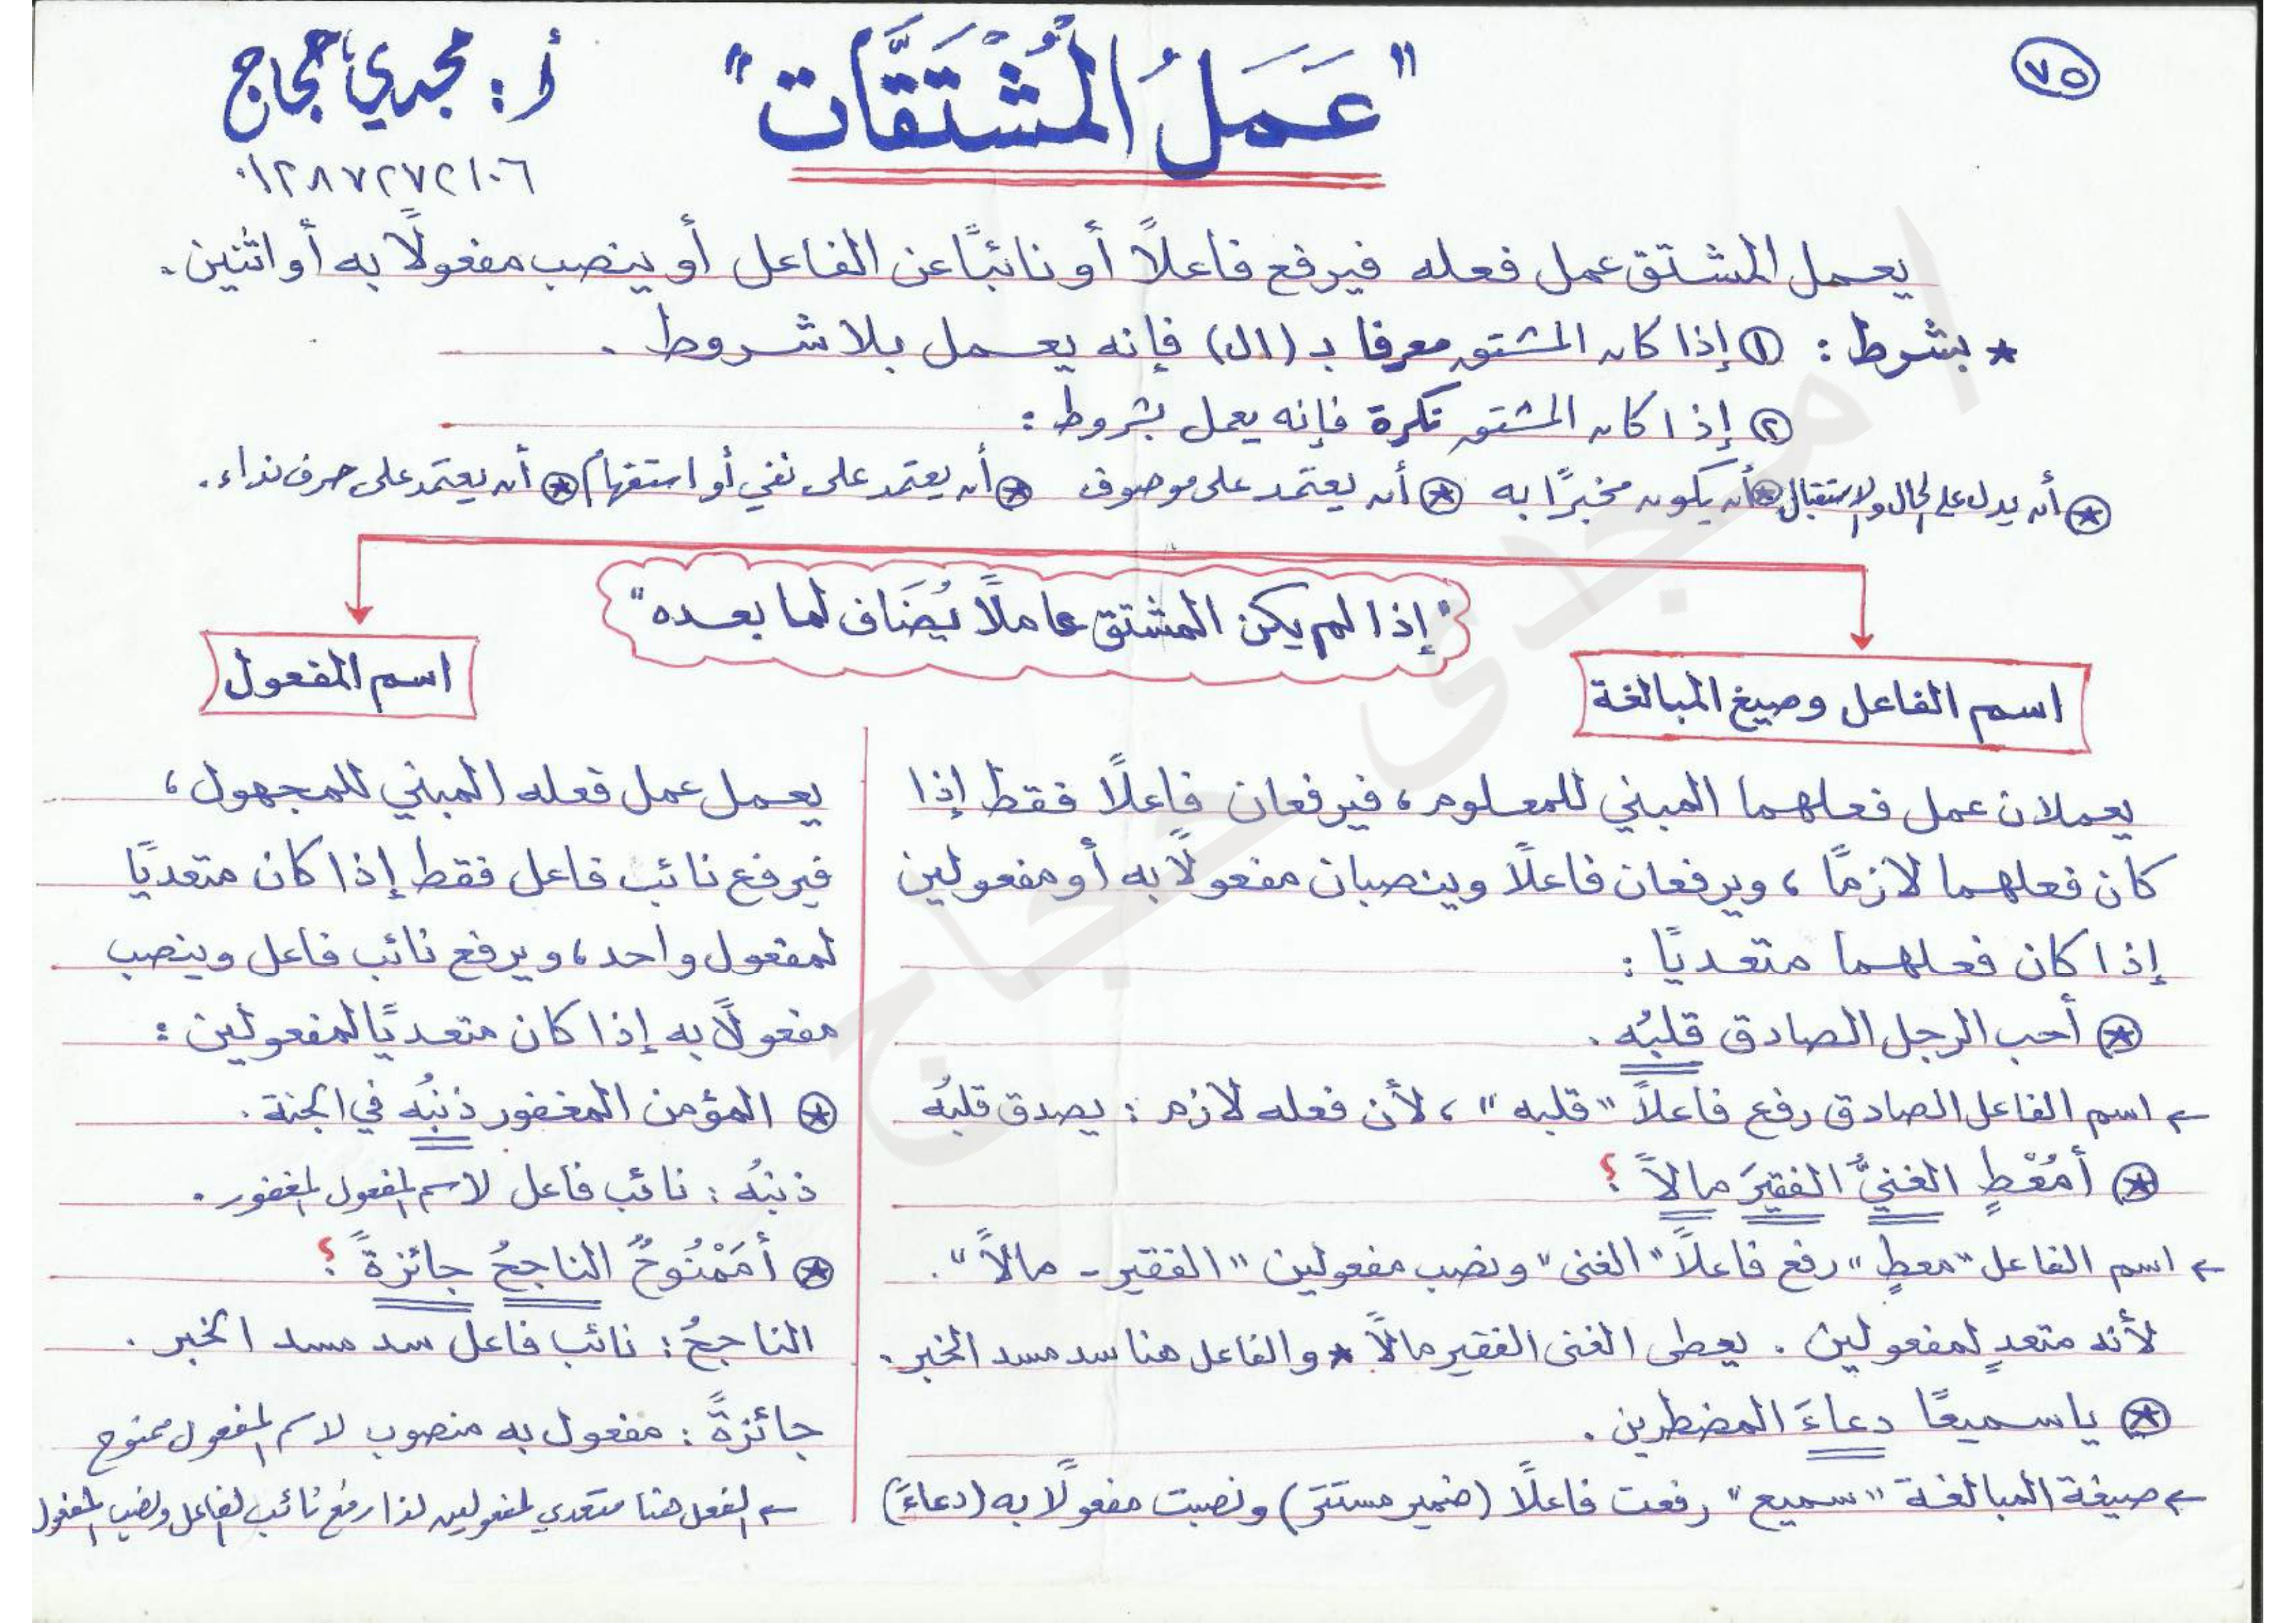 ٧٥
"عَمَلُ المُشْتَقَّات"
أ: مجدي حجاج
٠١٢٨٧٢٧٢١٠٦
يعمل المشتق عمل فعله فيرفع فاعلًا أو نائبًا عن الفاعل أو ينصب مفعولًا به أو اثنين.
* بشرط : ① إذا كان المشتق معرفا بـ (ال) فإنه يعمل بلا شروط .
② إذا كان المشتق نكرة فإنه يعمل بشروط :
⊛ أن يدل على الحال والاستقبال ⊛ أن يكون مخبرًا به ⊛ أن يعتمد على موصوف ⊛ أن يعتمد على نفي أو استفهام ⊛ أن يعتمد على حرف نداء.
"إذا لم يكن المشتق عاملًا يُضَاف لما بعده"
اسم الفاعل وصيغ المبالغة
يعملان عمل فعلهما المبني للمعلوم ، فيرفعان فاعلًا فقط إذا
كان فعلهما لازمًا ، ويرفعان فاعلًا وينصبان مفعولًا به أو مفعولين
إذا كان فعلهما متعديًا :
⊛ أحب الرجل الصادق قلبُه .
← اسم الفاعل الصادق رفع فاعلاً "قلبه" ، لأن فعله لازم : يصدق قلبُه
⊛ أمُعْطٍ الغنيُّ الفقيرَ مالاً ؟
← اسم الفاعل "معطٍ" رفع فاعلاً "الغنى" ونصب مفعولين "الفقير - مالاً".
لأنه متعدٍ لمفعولين . يعطى الغنى الفقير مالاً * والفاعل هنا سد مسد الخبر.
⊛ يا سميعًا دعاءَ المضطرين .
← صيغة المبالغة "سميع" رفعت فاعلًا (ضمير مستتر) ونصبت مفعولًا به (دعاءَ)
اسم المفعول
يعمل عمل فعله المبني للمجهول ،
فيرفع نائب فاعل فقط إذا كان متعديًا
لمفعول واحد ، ويرفع نائب فاعل وينصب
مفعولًا به إذا كان متعديًا لمفعولين :
⊛ المؤمن المغفور ذنبُه في الجنة .
ذنبُه : نائب فاعل لاسم المفعول المغفور .
⊛ أمَمْنُوحٌ الناجحُ جائزةً ؟
الناجحُ : نائب فاعل سد مسد الخبر .
جائزةً : مفعول به منصوب لاسم المفعول ممنوح
← الفعل هنا متعدي لمفعولين لذا رفع نائب الفاعل ونصب المفعول
أ مجدى حجاج